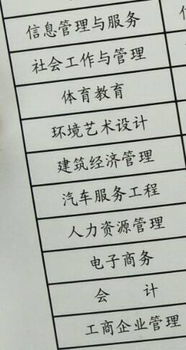 信息管理与服务
社会工作与管理
体育教育
环境艺术设计
建筑经济管理
汽车服务工程
人力资源管理
电子商务
会 计
工商企业管理